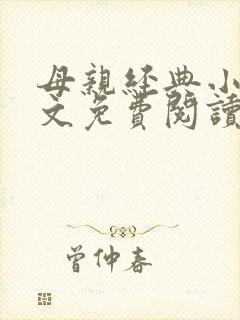 母親經典小
文免費閱讀
曾仲春